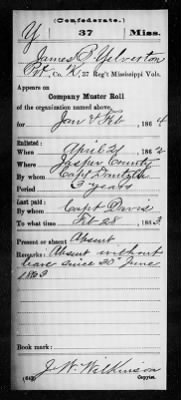 (Confederate.)
Y 37 Miss.
James B. Yelverton
Pvt, Co. K, 37 Reg't Mississippi Vols.
Appears on
Company Muster Roll
of the organization named above,
for Jan & Feb, 1864
Enlisted:
When April 21, 1862
Where Jasper County
By whom Capt
Period 3 years
Last paid:
By whom Capt Davis
To what time Feb 28, 1863
Present or absent Absent
Remarks: Absent without
leave since 30" June
1863
Book mark:
J. W. Wilkinson
(642) Copyist.